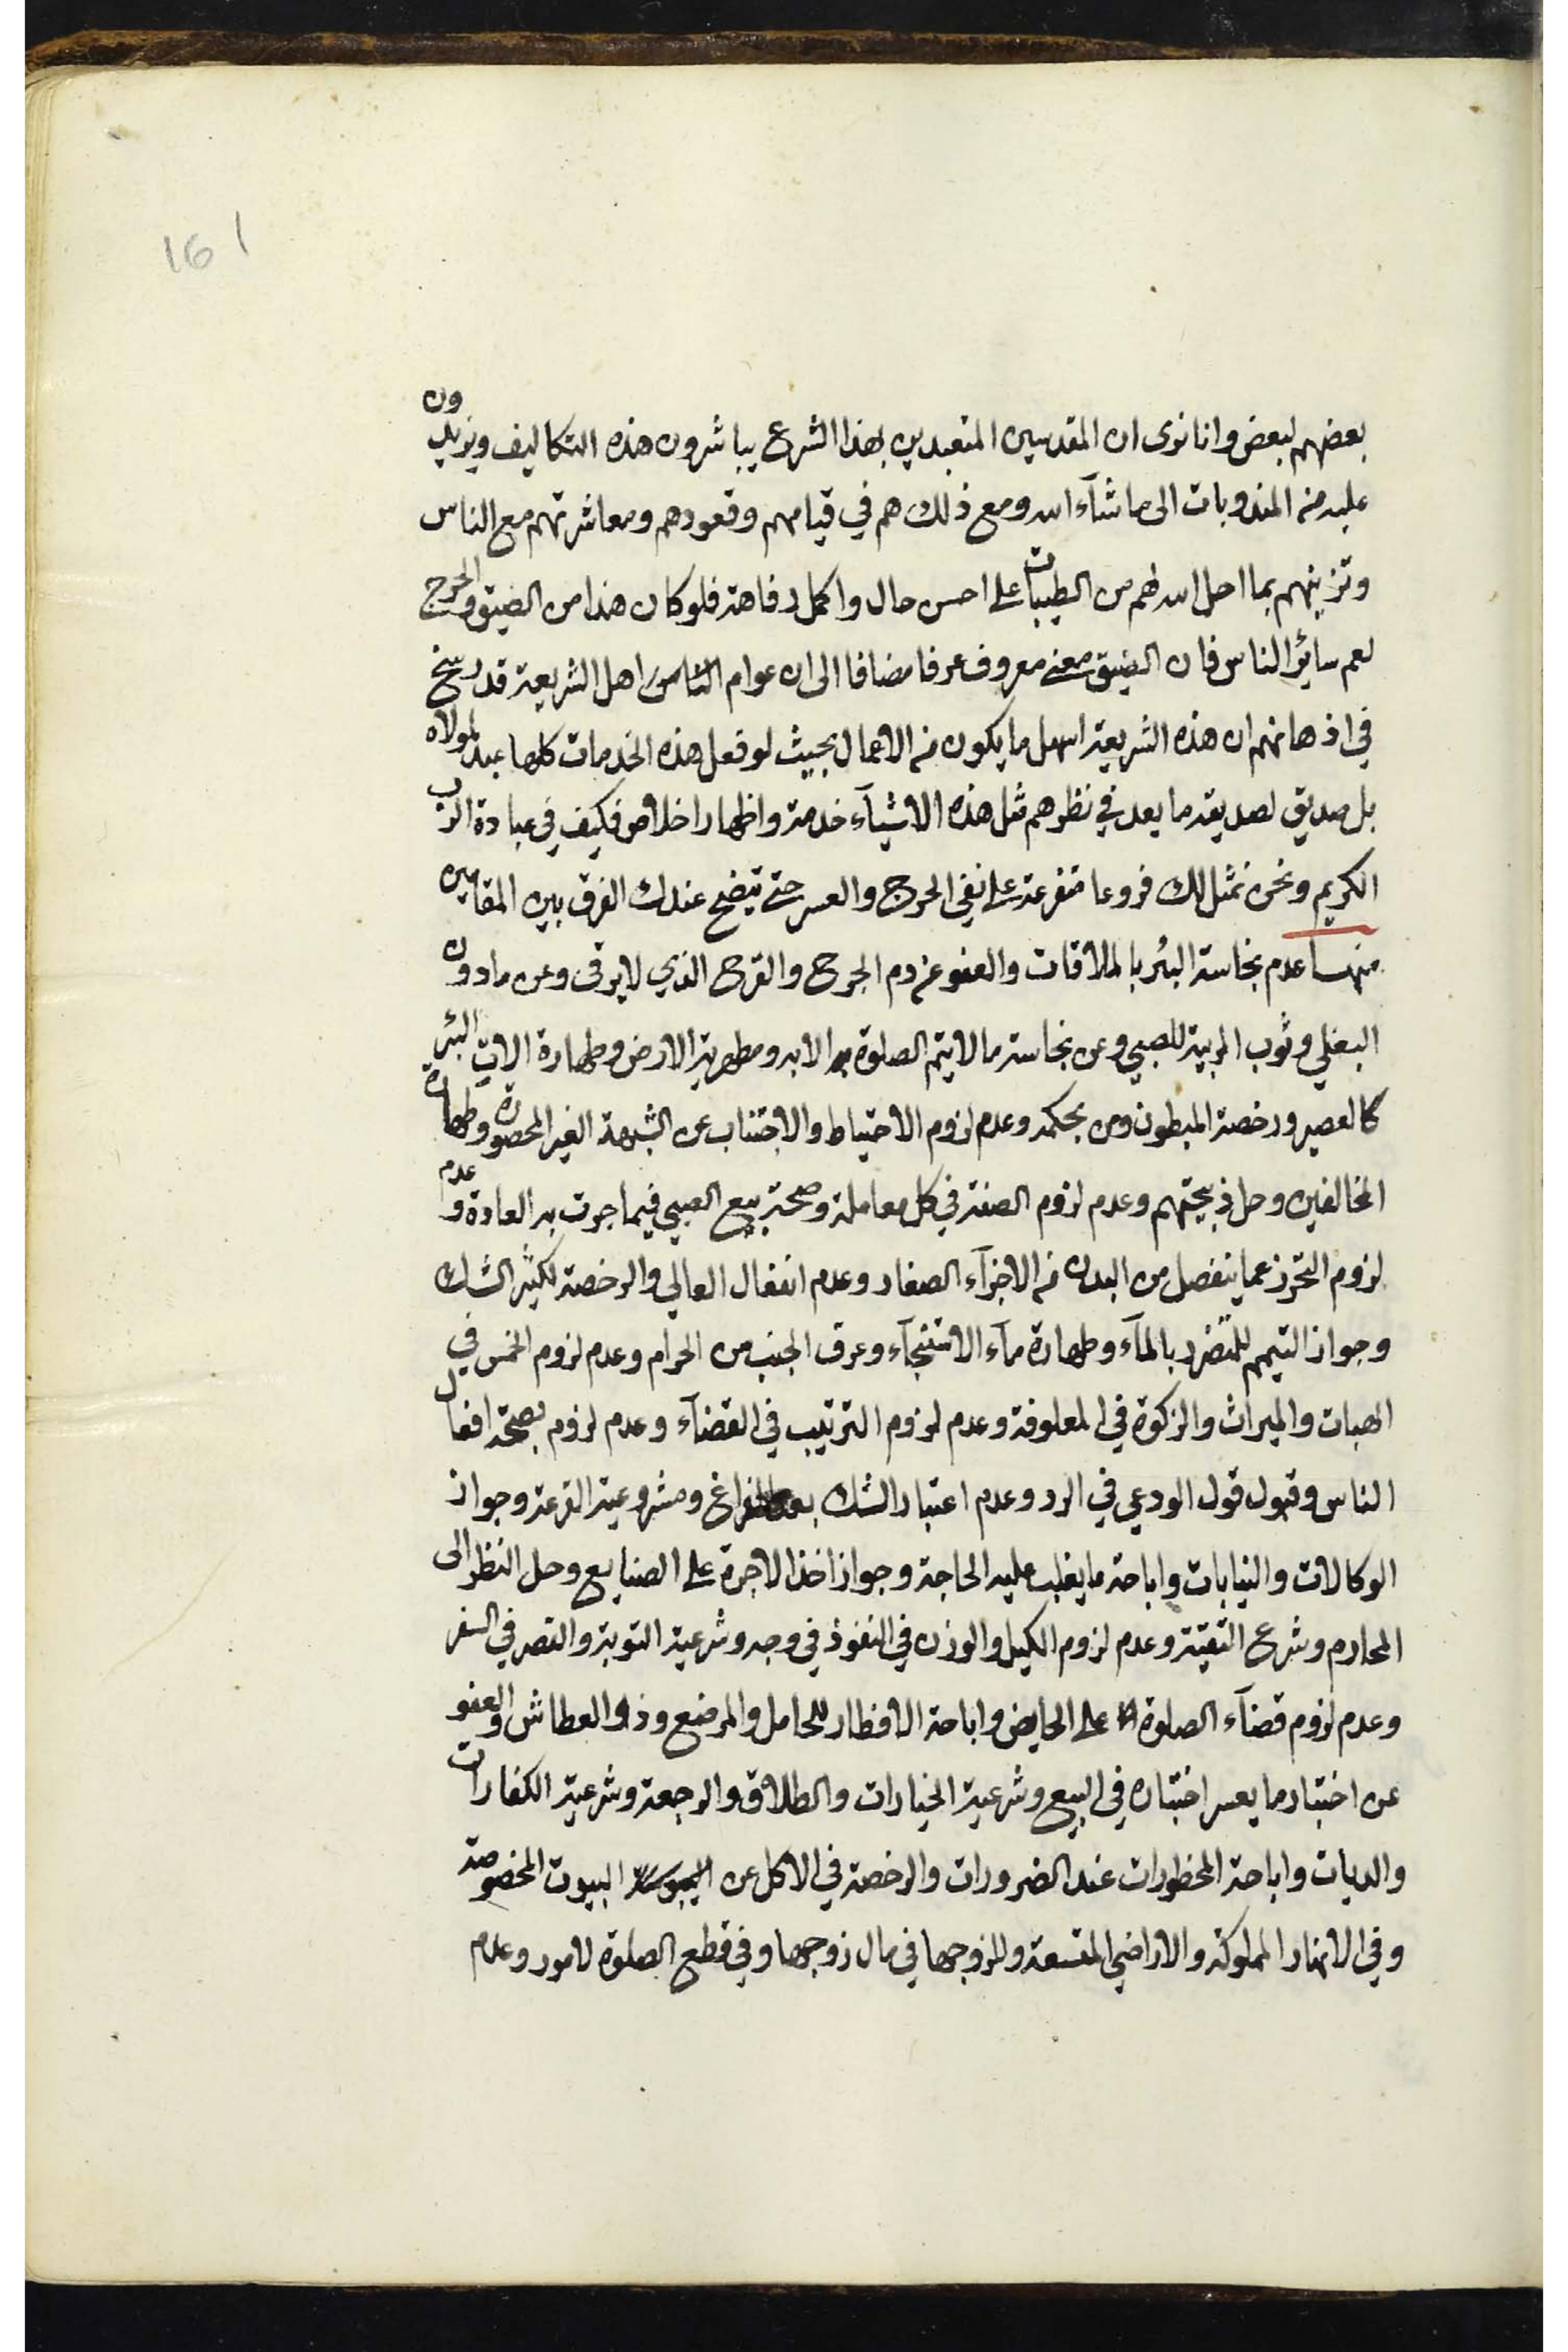 161
بعضهم لبعض وانا نرى ان المقدسين المتعبدين بهذا الشرع يباشرون هذه التكاليف ويزيدون
عليه من المندوبات الى ما شآء الله ومع ذلك هم في قيامهم وقعودهم ومعاشرتهم مع الناس
وتزينهم بما احل الله لهم من الطيبات على احسن حال واكمل رفاهة فلو كان هذا من الضيق والحرج
لعم سائر الناس فان الضيق معنى معروف عرفا مضافا الى ان عوام الناس اهل الشريعة قد رسخ
في اذهانهم ان هذه الشريعة اسهل ما يكون من الاعمال بحيث لو فعل هذه الخدمات كلها عبد لمولاه
بل صديق لصديقه ما يعد في نظرهم مثل هذه الاشيآء خدمة واظهار اخلاص فكيف في عبادة الرب
الكريم ونحن نمثل لك فروعا متفرعة على نفي الحرج والعسر حتى يتضح عندك الفرق بين المقامين
منها عدم نجاسة البئر بالملاقات والعفو عن دم الجرح والقرح الذي لا يرقى وعن ما دون
البغلي وثوب المربية للصبي وعن نجاسة ما لا يتم الصلوة الا به ومطهرية الارض وطهارة الات البئر
كالعصير ورخصة المبطون ومن بحكمه وعدم لزوم الاحتياط والاجتناب عن الشبهة الغير المحصورة وطهارة
المخالفين وحل ذبيحتهم وعدم لزوم الصفة في كل معاملة وصحة بيع الصبي فيما جرت به العادة وعدم
لزوم التحرز عما ينفصل من البدن من الاجزآء الصغار وعدم انفعال العالي والرخصة لكثير الشك
وجواز التيمم للمتضرر بالمآء وطهارة مآء الاستنجآء وعرق الجنب من الحرام وعدم لزوم الخمس في
الهبات والميراث والزكوة في المعلوفة وعدم لزوم الترتيب في القضآء وعدم لزوم بصحة افعال
الناس وقبول قول الودعي في الرد وعدم اعتبار الشك بعد الفراغ ومشروعية القرعة وجواز
الوكالات والنيابات واباحة ما يغلب عليه الحاجة وجواز اخذ الاجرة على الصنايع وحل النظر الى
المحارم وشرع التقية وعدم لزوم الكيل والوزن في النقوذ في وجه وشرعية التوبة والقصر في السفر
وعدم لزوم قضآء الصلوة على الحايض واباحة الافطار للحامل والمرضع وذو العطاش والعفو
عن اختبار ما يعسر اختباره في البيع وشرعية الخيارات والطلاق والرجعة وشرعية الكفارات
والديات واباحة المحظورات عند الضرورات والرخصة في الاكل عن البيوت المخصوصة
وفي الانهار المملوكة والاراضي المتسعة وللزوجها في مال زوجها وفي قطع الصلوة لامور وعدم